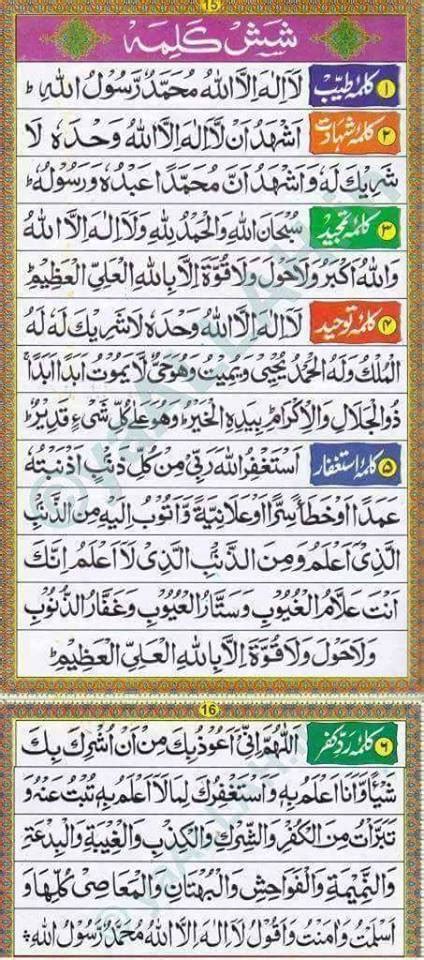 15
شش کلمه
۱ کلمۂ طیّب لَآ اِلٰهَ اِلَّا اللهُ مُحَمَّدٌ رَّسُوْلُ اللهِ ؕ
۲ کلمۂ شہادت اَشْهَدُ اَنْ لَّآ اِلٰهَ اِلَّا اللهُ وَحْدَهٗ لَا
شَرِيْكَ لَهٗ وَاَشْهَدُ اَنَّ مُحَمَّدًا عَبْدُهٗ وَرَسُوْلُهٗ ؕ
۳ کلمۂ تمجید سُبْحَانَ اللهِ وَالْحَمْدُ لِلّٰهِ وَلَآ اِلٰهَ اِلَّا اللهُ
وَاللهُ اَكْبَرُ وَلَا حَوْلَ وَلَا قُوَّةَ اِلَّا بِاللهِ الْعَلِيِّ الْعَظِيْمِ ؕ
۴ کلمۂ توحید لَآ اِلٰهَ اِلَّا اللهُ وَحْدَهٗ لَا شَرِيْكَ لَهٗ لَهُ
الْمُلْكُ وَلَهُ الْحَمْدُ يُحْيٖ وَيُمِيْتُ وَهُوَ حَيٌّ لَّا يَمُوْتُ اَبَدًا اَبَدًا ؕ
ذُو الْجَلَالِ وَالْاِكْرَامِ ؕ بِيَدِهِ الْخَيْرُ ؕ وَهُوَ عَلٰى كُلِّ شَيْءٍ قَدِيْرٌ ؕ
۵ کلمۂ استغفار اَسْتَغْفِرُ اللهَ رَبِّيْ مِنْ كُلِّ ذَنْۢبٍ اَذْنَبْتُهٗ
عَمَدًا اَوْ خَطَأً سِرًّا اَوْ عَلَانِيَةً وَّاَتُوْبُ اِلَيْهِ مِنَ الذَّنْۢبِ
الَّذِيْ اَعْلَمُ وَمِنَ الذَّنْۢبِ الَّذِيْ لَآ اَعْلَمُ اِنَّكَ
اَنْتَ عَلَّامُ الْغُيُوْبِ وَسَتَّارُ الْعُيُوْبِ وَغَفَّارُ الذُّنُوْبِ
وَلَا حَوْلَ وَلَا قُوَّةَ اِلَّا بِاللهِ الْعَلِيِّ الْعَظِيْمِ ؕ
16
۶ کلمۂ ردّ کفر اَللّٰهُمَّ اِنِّيْ اَعُوْذُ بِكَ مِنْ اَنْ اُشْرِكَ بِكَ
شَيْأً وَّاَنَا اَعْلَمُ بِهٖ وَاَسْتَغْفِرُكَ لِمَا لَآ اَعْلَمُ بِهٖ تُبْتُ عَنْهُ وَ
تَبَرَّأْتُ مِنَ الْكُفْرِ وَالشِّرْكِ وَالْكِذْبِ وَالْغِيْبَةِ وَالْبِدْعَةِ
وَالنَّمِيْمَةِ وَالْفَوَاحِشِ وَالْبُهْتَانِ وَالْمَعَاصِيْ كُلِّهَا وَ
اَسْلَمْتُ وَاٰمَنْتُ وَاَقُوْلُ لَآ اِلٰهَ اِلَّا اللهُ مُحَمَّدٌ رَّسُوْلُ اللهِ ؕ